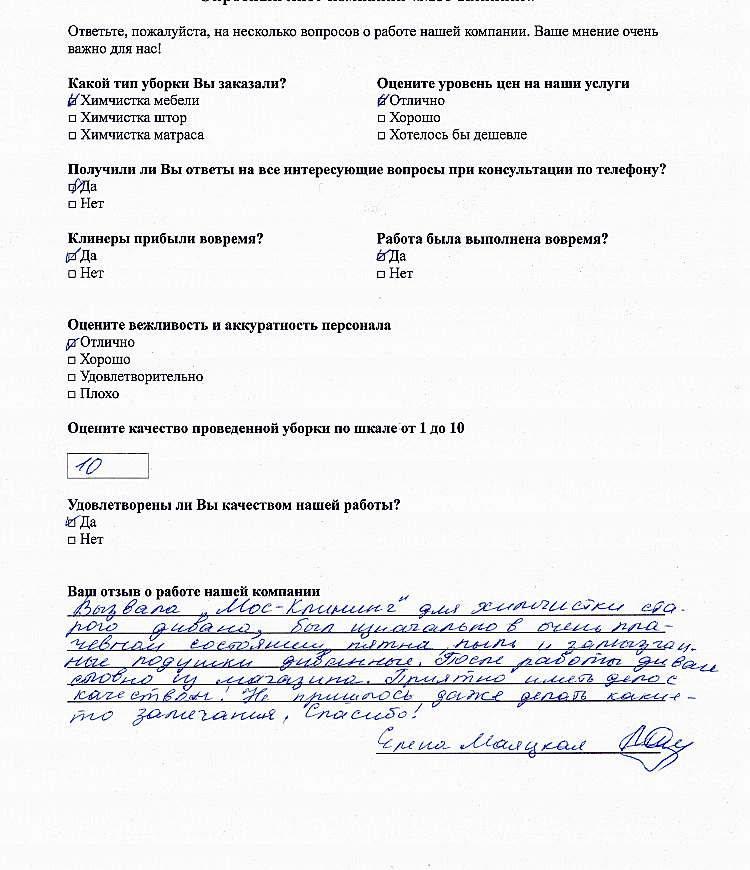 Ответьте, пожалуйста, на несколько вопросов о работе нашей компании. Ваше мнение очень
важно для нас!
Какой тип уборки Вы заказали?
Химчистка мебели
Химчистка штор
Химчистка матраса
Оцените уровень цен на наши услуги
Отлично
Хорошо
Хотелось бы дешевле
Получили ли Вы ответы на все интересующие вопросы при консультации по телефону?
Да
Нет
Клинеры прибыли вовремя?
Да
Нет
Работа была выполнена вовремя?
Да
Нет
Оцените вежливость и аккуратность персонала
Отлично
Хорошо
Удовлетворительно
Плохо
Оцените качество проведенной уборки по шкале от 1 до 10
10
Удовлетворены ли Вы качеством нашей работы?
Да
Нет
Ваш отзыв о работе нашей компании
Вызвала „Мос-Клининг" для химчистки ста-
рого дивана, был изначально в очень пла-
чевном состоянии, пятна, пыль и замызган-
ные подушки диванные. После работы диван
словно из магазина. Приятно иметь дело с
качеством! Не пришлось даже делать какие-
то замечания, Спасибо!
Елена Маяцкая